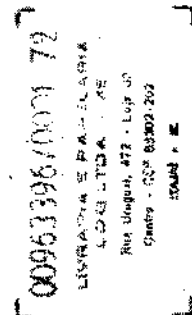 00963396/0001 72
LIVRARIA E PAPELARIA
LTDA - ME
Rua Uruguai, 472 - Loja
Centro - CEP 88302-202
ITAJAÍ